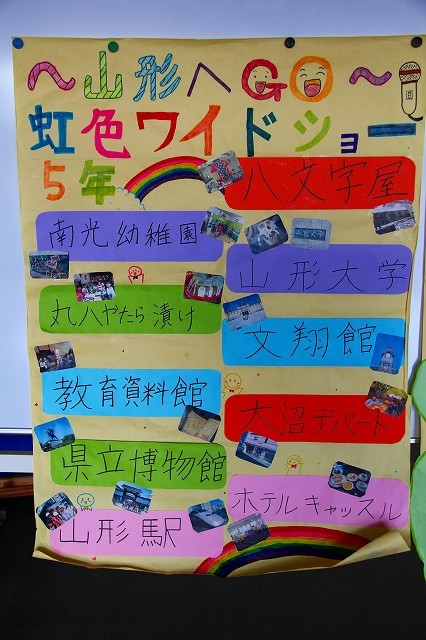 ～山形へGO～
虹色ワイドショー
5年
八文字屋
南光幼稚園
山形大学
丸八やたら漬け
文翔館
教育資料館
大沼デパート
県立博物館
ホテルキャッスル
山形駅